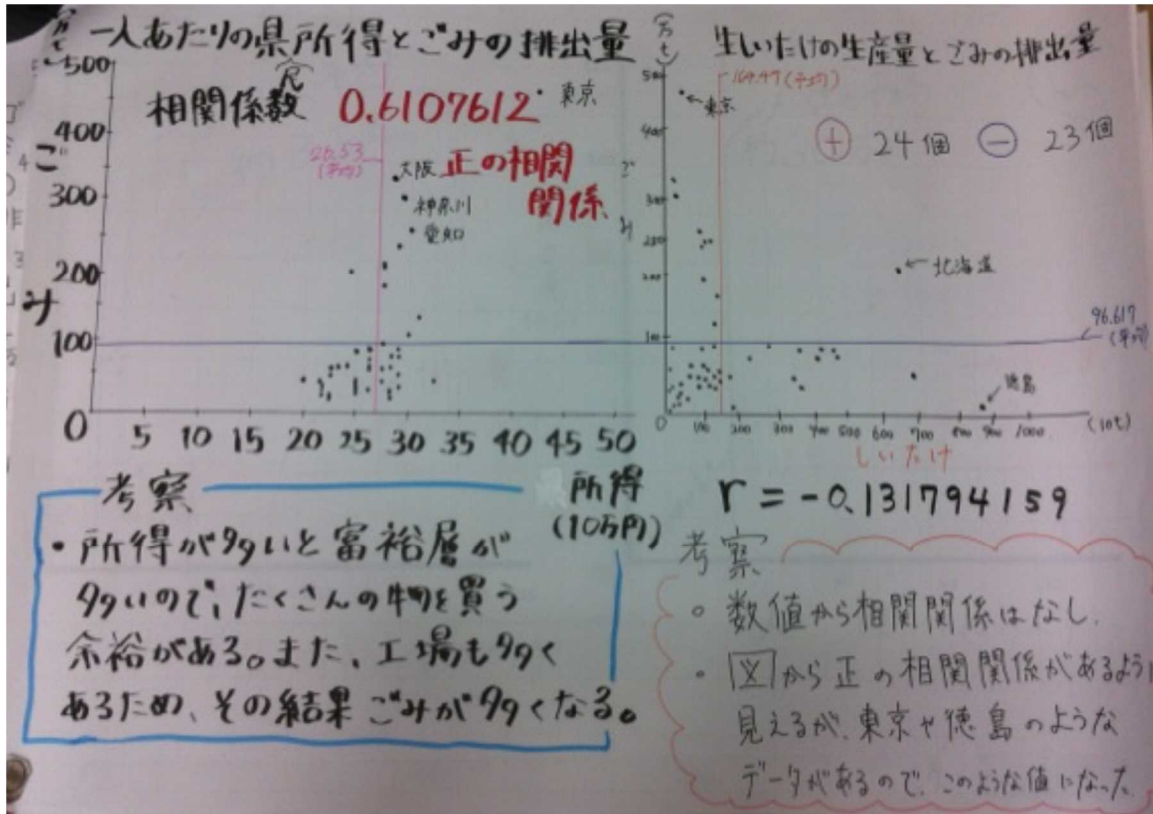 一人あたりの県民所得とごみの排出量
(万t)
500
400
300
200
100
0
ごみ
相関係数 0.6107612
正の相関
関係
26.53
(平均)
東京
大阪
神奈川
愛知
5 10 15 20 25 30 35 40 45 50
所得
(10万円)
考察
・所得が多いと富裕層が
多いので、たくさんの物を買う
余裕がある。また、工場も多く
あるため、その結果ごみが多くなる。
生しいたけの生産量とごみの排出量
(万t)
ごみ
164.47(平均)
←東京
+ 24個 − 23個
←北海道
96.617
(平均)
徳島
100 200 300 400 500 600 700 800 900 1000
(10t)
しいたけ
r = -0.131794159
考察
○ 数値から相関関係はなし.
○ 図から正の相関関係があるように
見えるが、東京や徳島のような
データがあるので、このような値になった